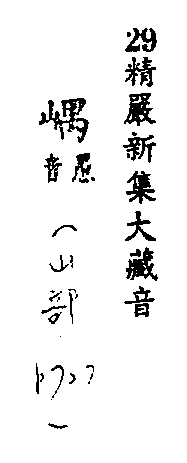 29精嚴新集大藏音
嵎
愚音
(山部
)